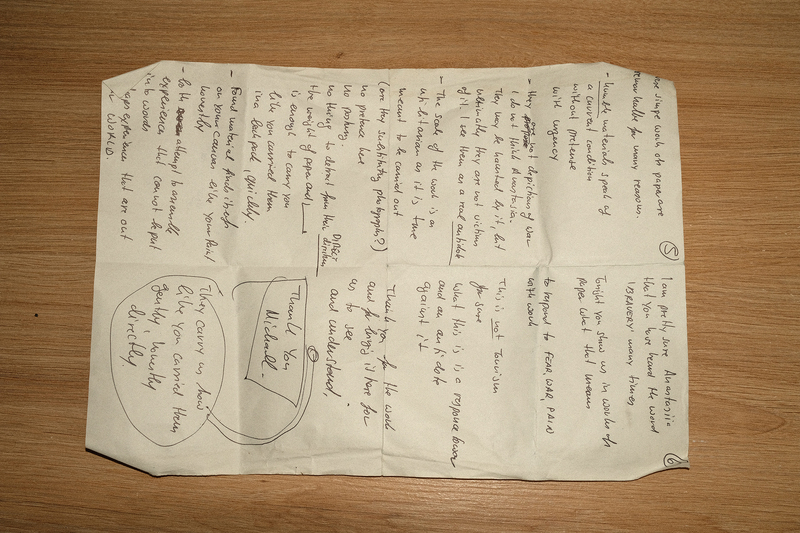 (5)
these simple work on paper are
remarkable for many reasons.
- humble materials speak of
a current condition
without pretense
with urgency
- they are not depictions of war
I do not think Anastasia.
They may be haunted by it, but
ultimately they are not victims
of it I see them as a real antidote
- The scale of the work is as
utilitarian as it is true
meant to be carried out
(are they substituting photographs?)
no pretense here
no posturing.
nothing to detract from their direction
DIRECT
the weight of paper and
is enough to carry you
like you carried them
in a back pack, quickly.
- Found material finds itself
on your canvas like your paint
honestly
- both attempt to assemble
experience that can not be put
into words
experience that are out
WORLD.
(6)
I am pretty sure Anastasiia
that you have heard the word
"BRAVERY" many times
Tonight you show us in works on
paper what that means
to respond to FEAR, WAR, PAIN
with work
This is not Tourism
for sure
What this is is a response to war
and an antidote
against it
Thank you for the work
and for bringing it here for
us to see
and understand.
Thank you
Michael -
They carry us how
like you carried them
gently, honestly
directly.